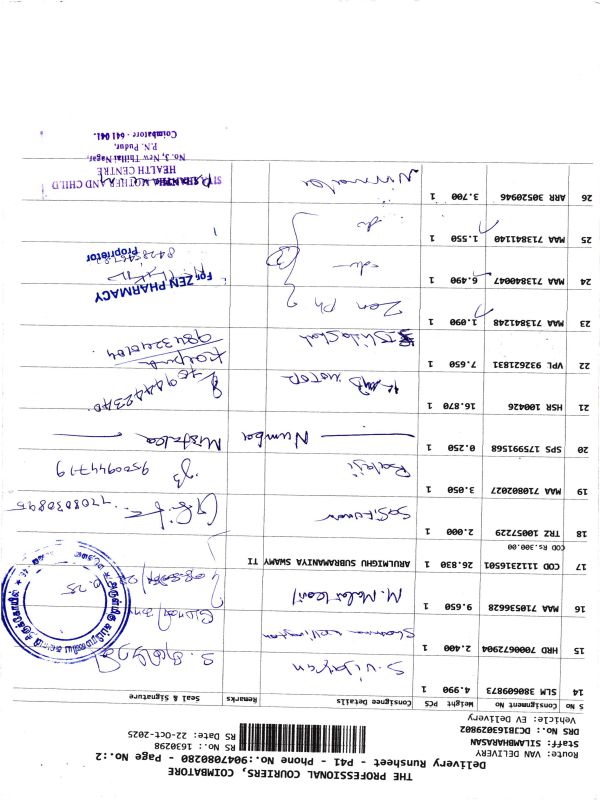 THE PROFESSIONAL COURIERS, COIMBATORE
Delivery Runsheet - P41 - Phone No.:9047080280 - Page No.:2
Route: VAN DELIVERY
Staff: SILAMBHARASAN
DRS No.: DCJB1630298O2
Vehicle: EV Delivery
RS No.: 1630298
RS Date: 22-Oct-2025
S No Consignment No Weight PCS Consignee Details Remarks Seal & Signature
14 SLM 380609873 4.990 1 S. Vijayan
15 HRD 7000672904 2.400 1
16 MAA 710536628 9.650 1 M.
17 COD 1112316501 26.830 1 ARULMIGHU UBRAMANIYA SWAMY TI
COD Rs.300.00
18 TRZ 10057229 2.000 1 Sasikumar 7708030895
19 MAA 710802027 3.050 1 Balaji 9500944719
20 SPS 175991568 0.250 1 Number Mistake
21 HSR 100426 16.870 1 Motor
22 VPL 932621831 7.650 1 9843240104
23 MAA 713841248 1.090 1 Zen Ph
24 MAA 713840047 6.490 1 do
For ZEN PHARMACY
Proprietor
25 MAA 713841140 1.550 1 do
26 ARR 30520946 3.700 1 Nirmala
MOTHER AND CHILD
HEALTH CENTRE
No. 3, New Thillai Nagar,
P.N. Pudur,
Coimbatore - 641 041.